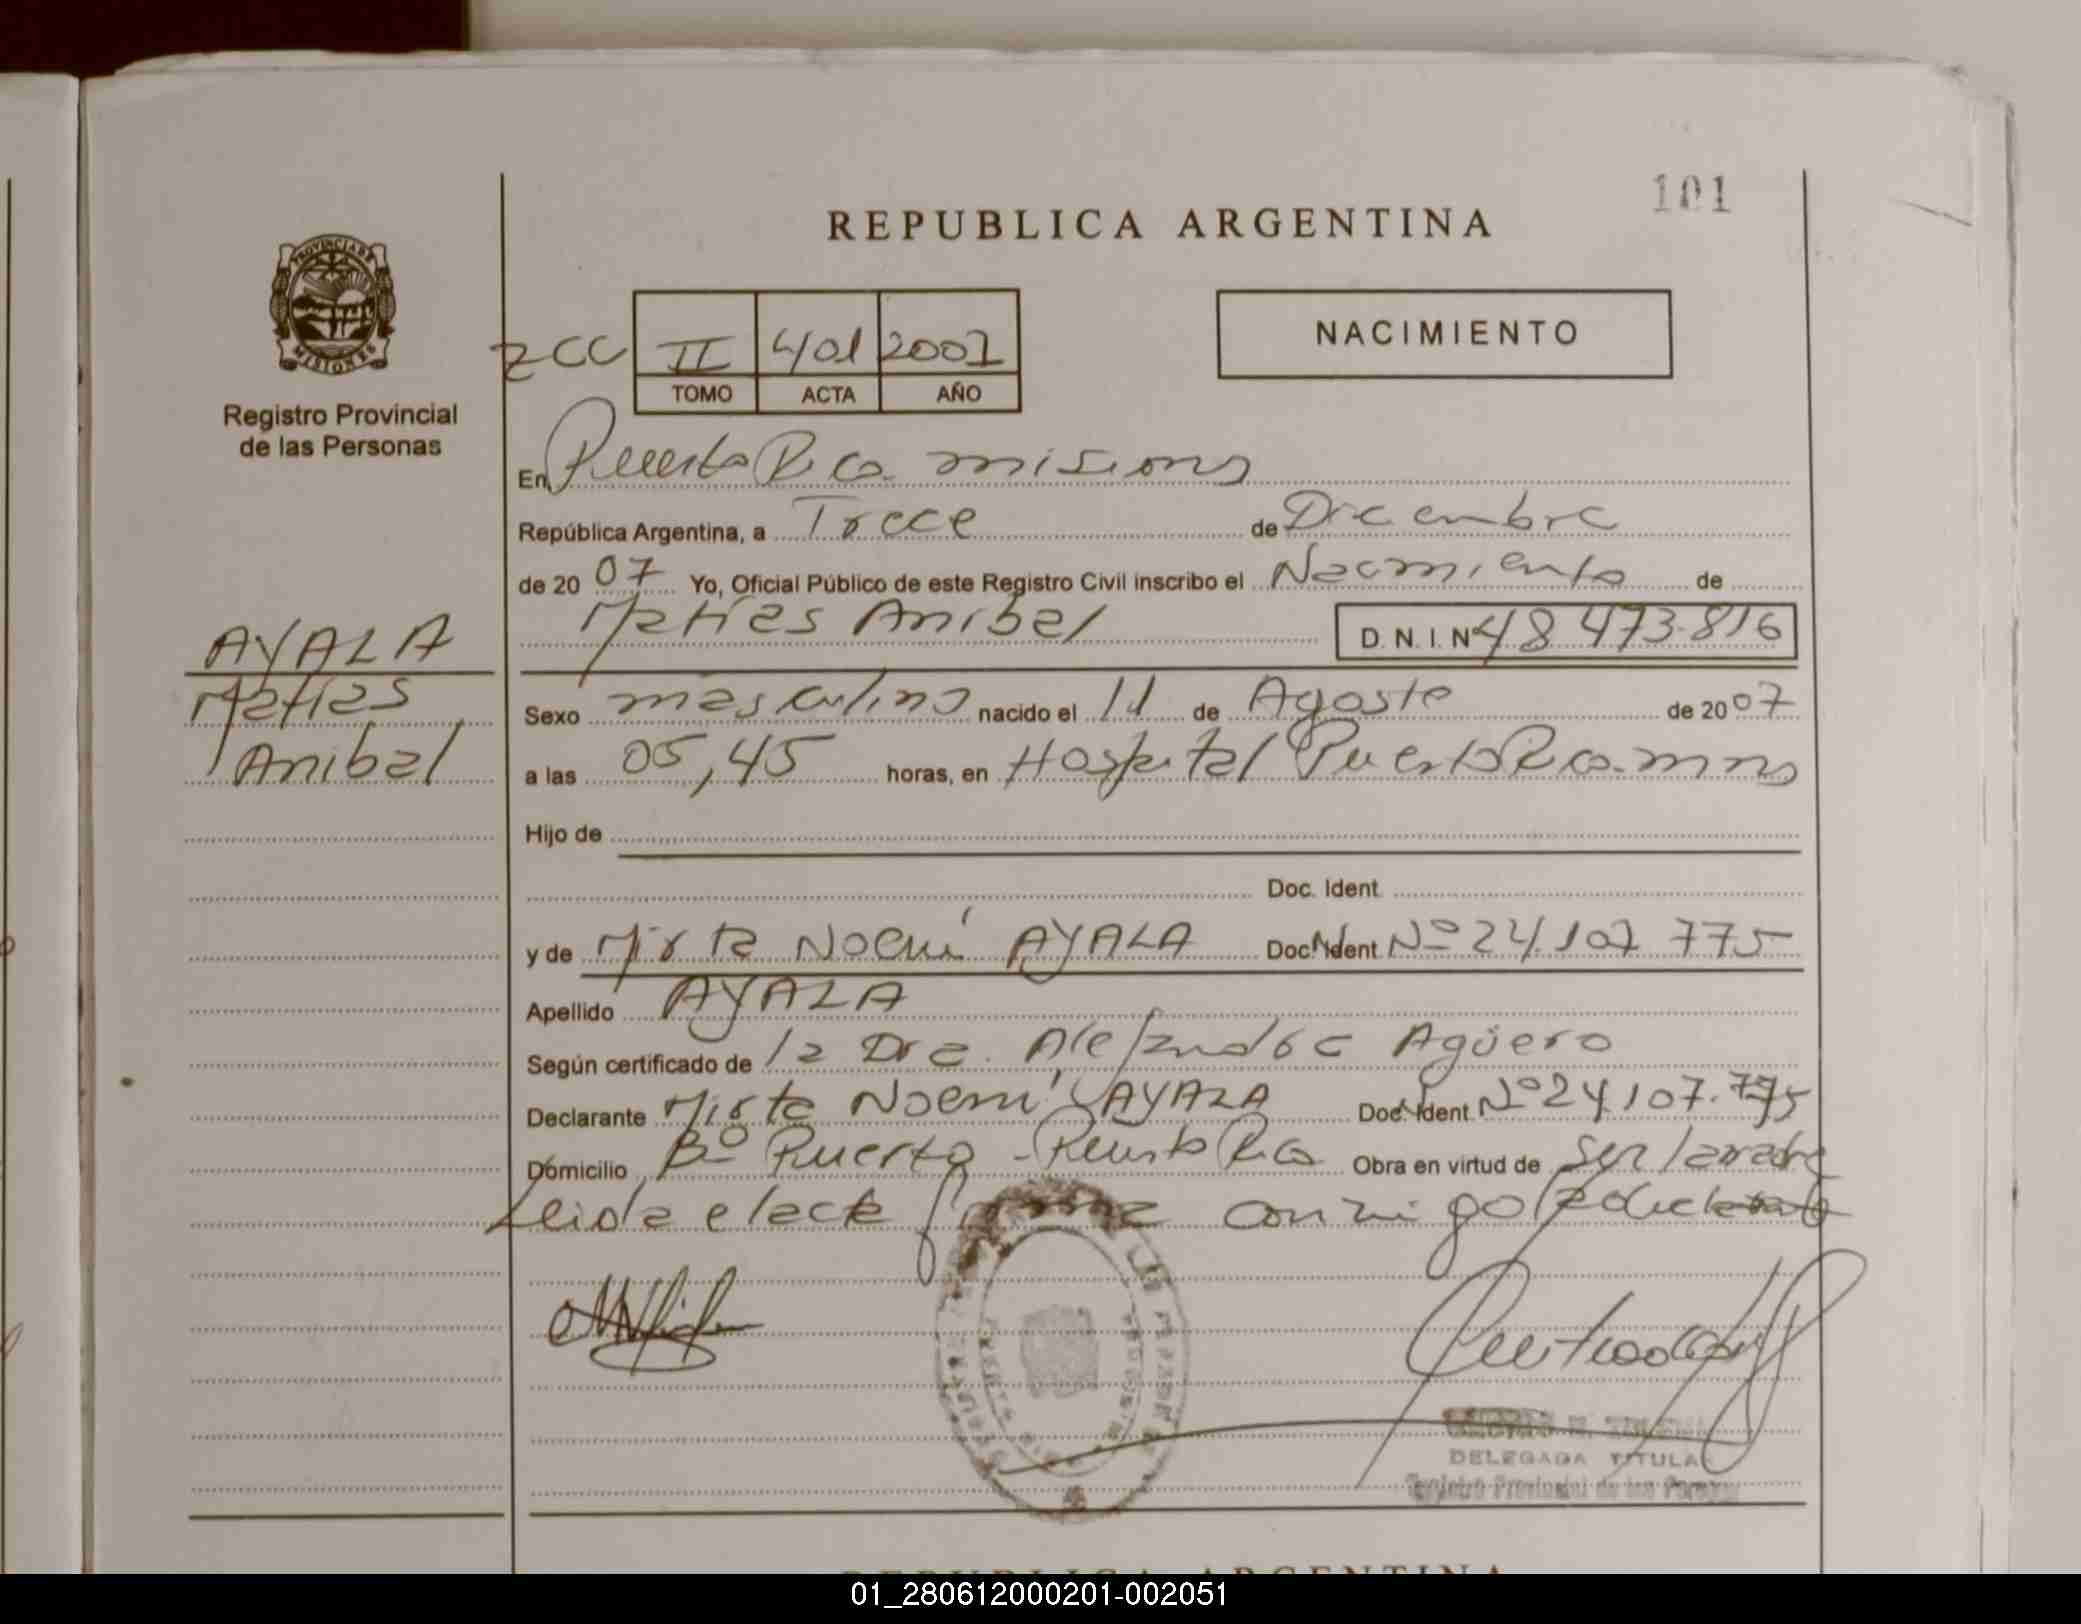 101
REPUBLICA ARGENTINA
PROVINCIA DE
MISIONES
Registro Provincial
de las Personas
ZCC II 401 2007
TOMO ACTA AÑO
NACIMIENTO
En Puerto Rico misiones
República Argentina, a Trece de Diciembre
de 20 07 Yo, Oficial Público de este Registro Civil inscribo el Nacimiento de
Matías Anibal D.N.I. Nº 48.473.816
AYALA
Matías
Anibal
Sexo masculino nacido el 11 de Agosto de 20 07
a las 05,45 horas, en Hospital Puerto Rico mnes
Hijo de
Doc. Ident.
y de Mirta Noemí AYALA Doc. Ident. Nº 24.107.775
Apellido AYALA
Según certificado de la Dra. Alejandra Agüero
Declarante Mirta Noemí AYALA Doc. Ident. Nº 24.107.775
Domicilio Bº Puerto - Puerto Rico Obra en virtud de ser la madre
Leida el acta firma conmigo la declarante
DELEGADA TITULAR
Registro Provincial de las Personas
REPUBLICA ARGENTINA
01_280612000201-002051